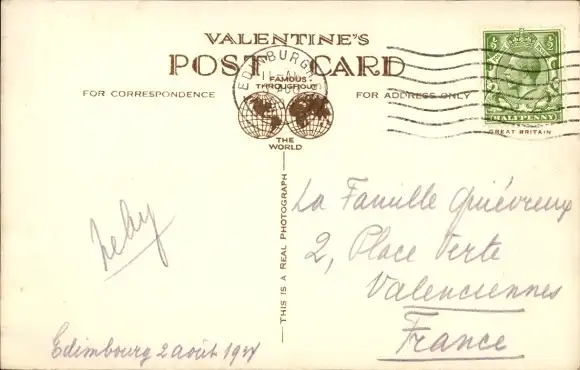 VALENTINE'S
POST CARD
FAMOUS
THROUGHOUT
FOR CORRESPONDENCE
FOR ADDRESS ONLY
THE
WORLD
EDINBURGH
½ ½
HALFPENNY
GREAT BRITAIN
THIS IS A REAL PHOTOGRAPH
La Famille Quiévreux
2, Place Verte
Valenciennes
France
Edimbourg 2 août